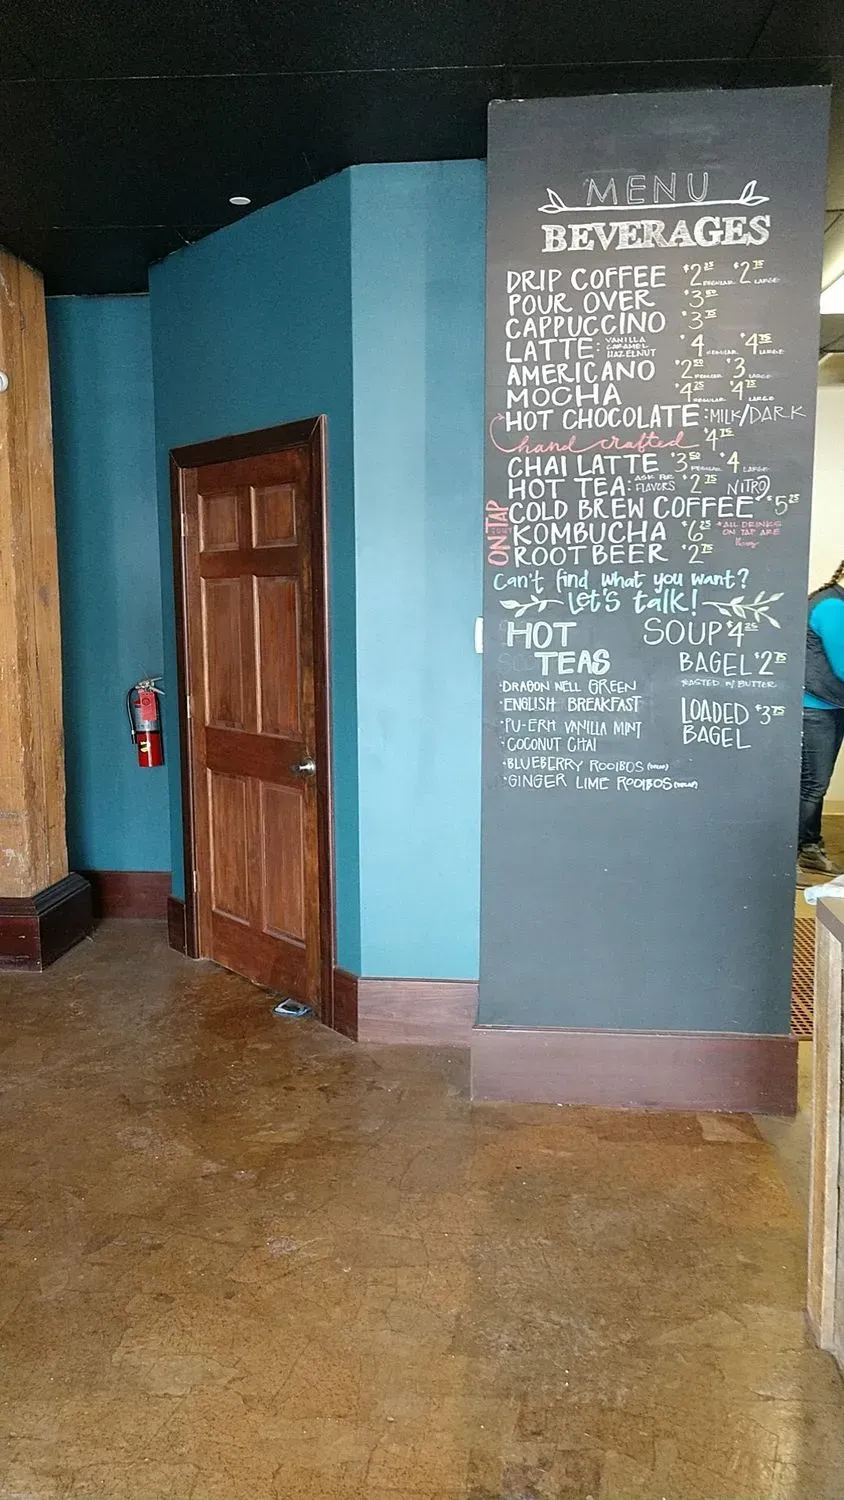 MENU
BEVERAGES
DRIP COFFEE $2 25 REGULAR $2 75 LARGE
POUR OVER $3 50
CAPPUCCINO $3 75
LATTE: VANILLA CARAMEL HAZELNUT $4 REGULAR $4 75 LARGE
AMERICANO $2 50 REGULAR $3 LARGE
MOCHA $4 25 REGULAR $4 75 LARGE
HOT CHOCOLATE: MILK/DARK
hand crafted $4 75
CHAI LATTE $3 50 REGULAR $4 LARGE
HOT TEA: ASK FOR FLAVORS $2 75
ON TAP
NITRO COLD BREW COFFEE $5 25
KOMBUCHA $6 25 *ALL DRINKS ON TAP ARE
ROOT BEER $2 75
Can't find what you want?
Let's talk!
HOT TEAS
·DRAGON WELL GREEN
·ENGLISH BREAKFAST
·PU-ERH VANILLA MINT
·COCONUT CHAI
·BLUEBERRY ROOIBOS
·GINGER LIME ROOIBOS
SOUP $4 25
BAGEL $2 75
TOASTED W/ BUTTER
LOADED BAGEL $3 75